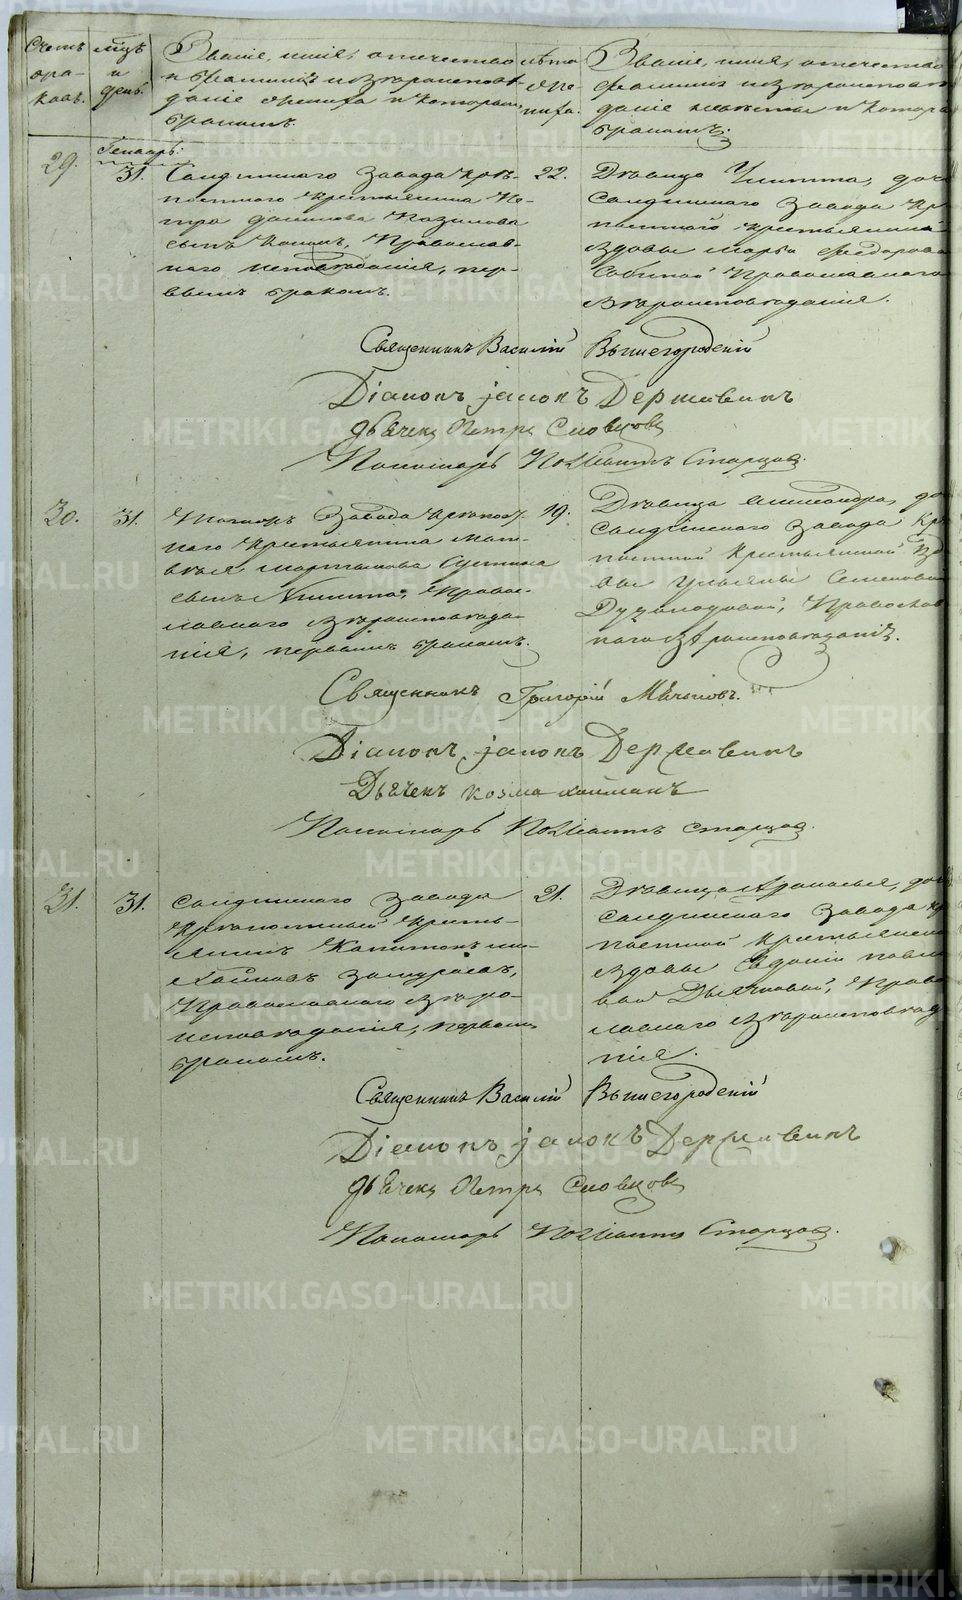 Счетъ бра- ковъ.
м͠цъ и день.
Званіе, имя, отечество
и фамилія и вѣроисповѣ-
даніе жениха и которымъ
бракомъ.
лѣта
жени-
ха.
Званіе, имя, отечество
фамилія и вѣроисповѣ
даніе невѣсты и котор
бракомъ.
29.
Генварь:
31.
Салдинскаго завода крѣ-
постнаго крестьянина Пе-
тра Данилова
сынъ Православ-
наго исповѣданія, пер-
вымъ бракомъ.
22.
Дѣвица доч
Салдинскаго завода кр
постнаго крестьянина
вдовы Марьи Федоров
Православнаго
вѣроисповѣданія.
Священникъ Василій Вышегородскій
Діаконъ Іаковъ Державинъ
Дьячекъ Петръ Словцовъ
Пономарь Старцовъ.
30.
31.
завода крѣпост-
наго крестьянина Мат-
вѣя Мартынова
сынъ Никита, Право-
славнаго вѣроисповѣда-
нія, первымъ бракомъ.
19.
Дѣвица Александра, до
Салдинскаго завода кр
постной крестьянской вд
вы Ульяны Семеновой
Православ
наго вѣроисповѣданія.
Священникъ Григорій
Діаконъ Іаковъ Державинъ
Дьячекъ Козма
Пономарь Старцовъ.
31.
31.
Салдинскаго завода
крѣпостный кресть-
янинъ Капитонъ Ми-
хайловъ
Православнаго вѣро-
исповѣданія, первымъ
бракомъ.
21.
Дѣвица Аѳанасья, доч
Салдинскаго завода кр
постной крестьянской
вдовы Евдокіи Павло
вой Дьячковой, Право
славнаго вѣроисповѣд
нія.
Священникъ Василій Вышегородскій
Діаконъ Іаковъ Державинъ
Дьячекъ Петръ Словцовъ
Пономарь Старцовъ.
METRIKI.GASO-URAL.RU